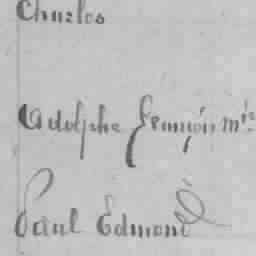 Charles
Adolphe François m ie
Paul Edmond